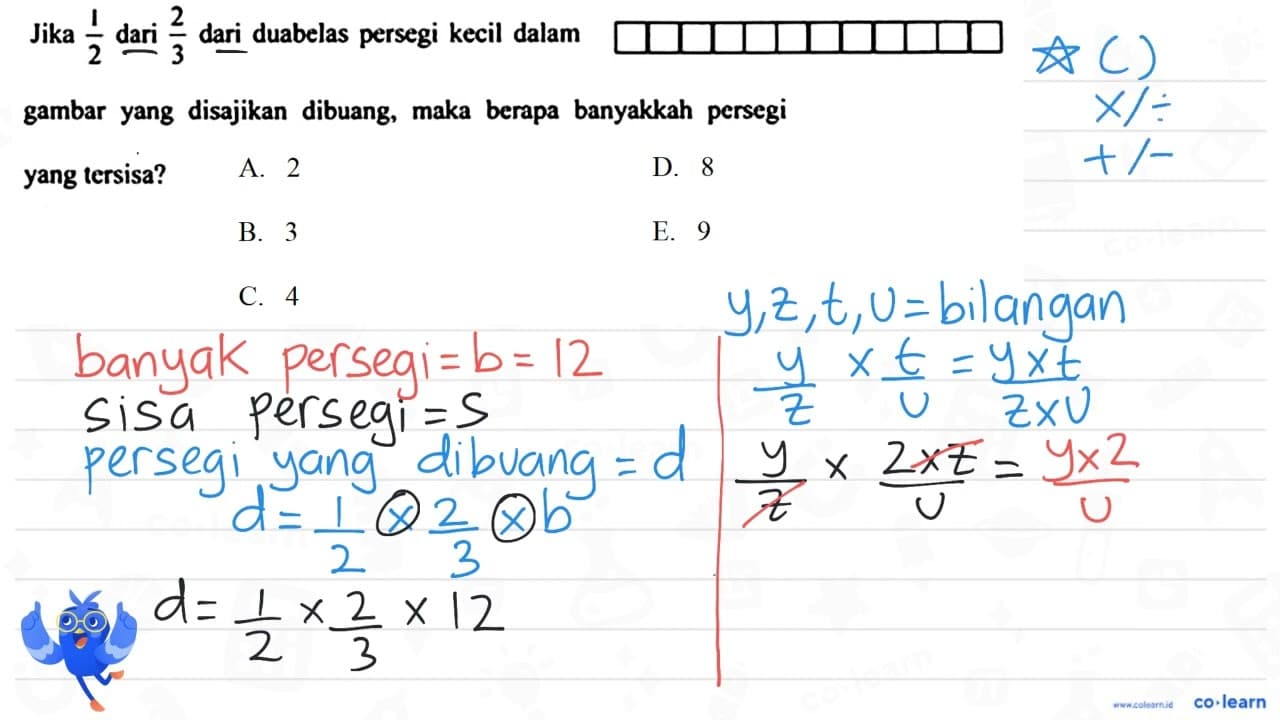 Jika 1/2 dari 2/3 dari duabelas persegi kecil dalam
gambar yang disajikan dibuang, maka berapa banyakkah persegi
yang tersisa?
A. 2
B. 3
C. 4
D. 8
E. 9
☆ ( )
×/÷
+/-
banyak persegi = b = 12
sisa persegi = s
persegi yang dibuang = d
d = 1/2 × 2/3 × b
d = 1/2 × 2/3 × 12
y, z, t, u = bilangan
y/z × t/u = y×t/z×u
y/z × 2×z/u = y×2/u
www.colearn.id
co·learn